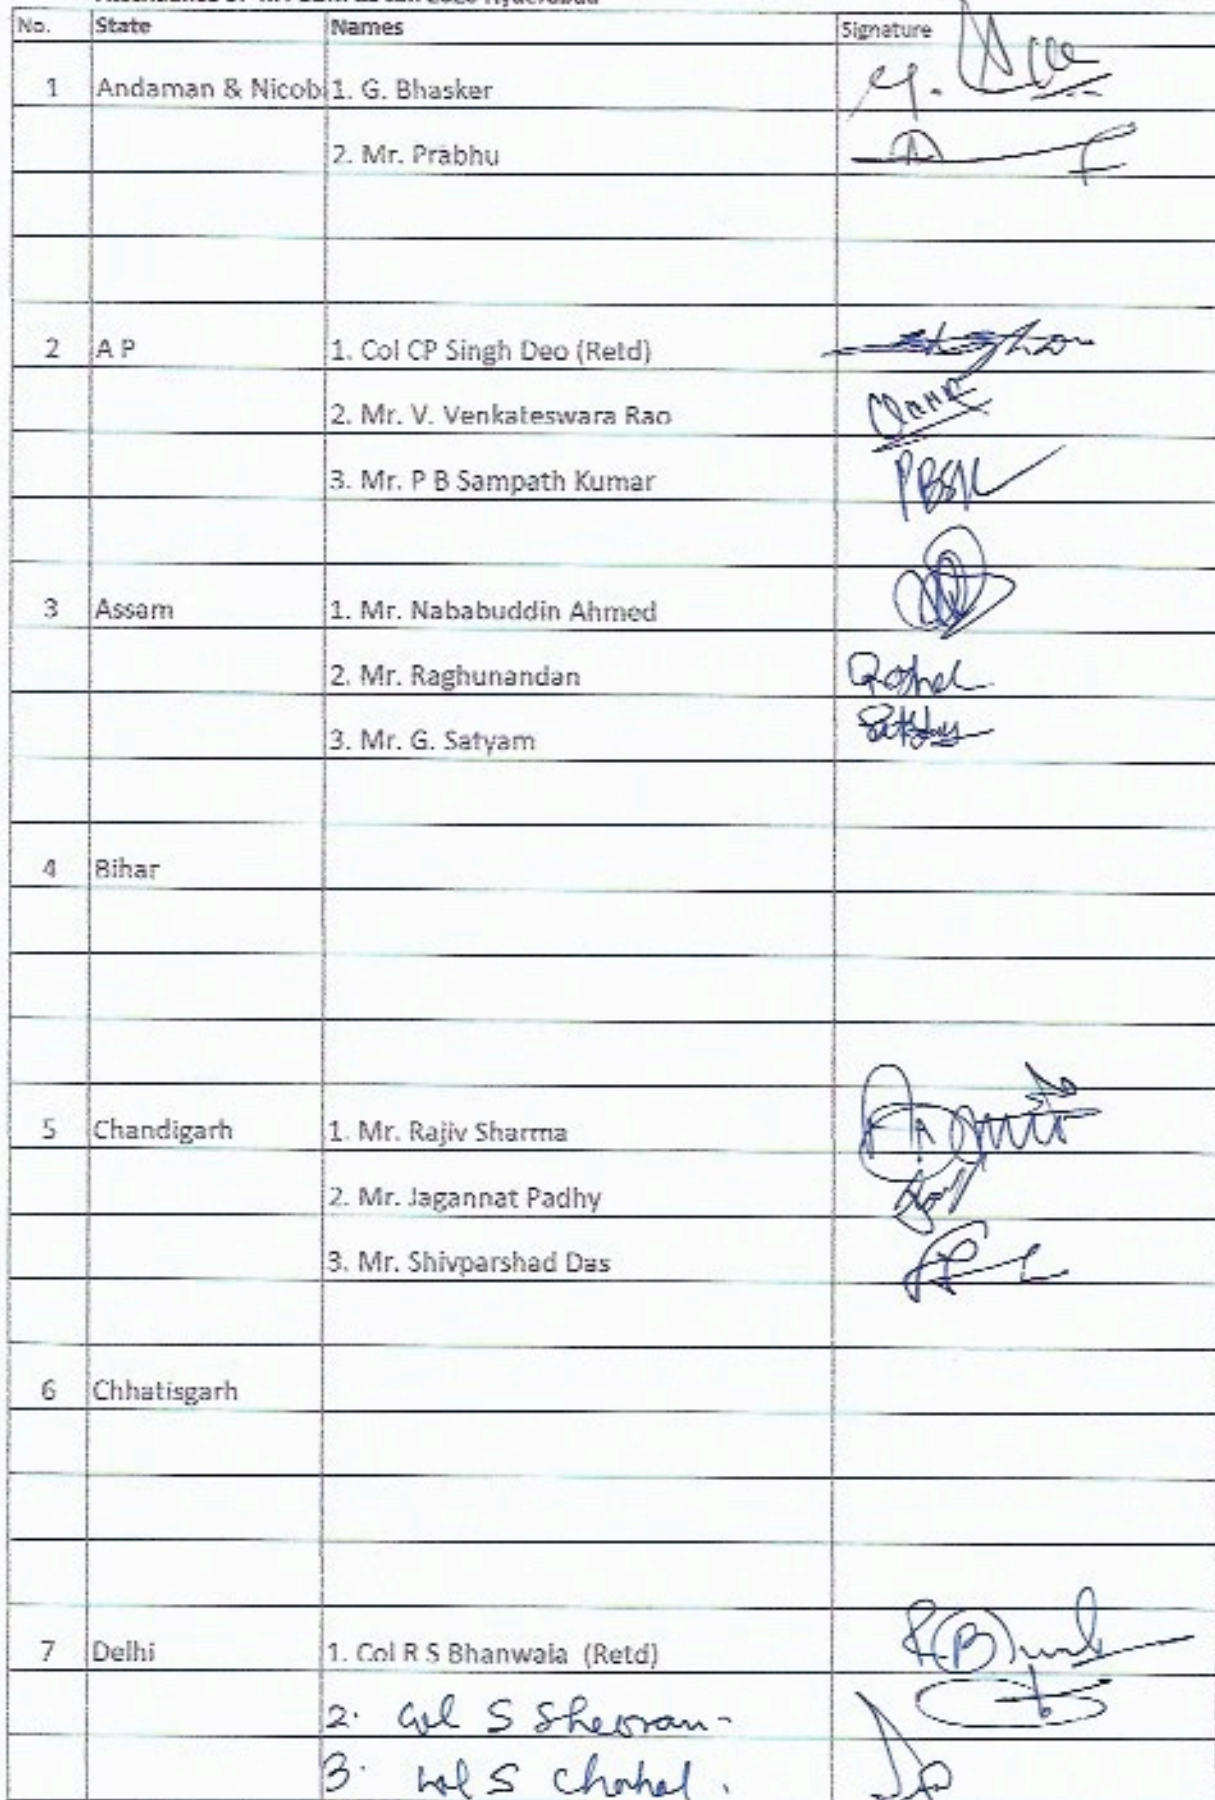 No. State Names Signature
1 Andaman & Nicob 1. G. Bhasker
2. Mr. Prabhu
2 A P 1. Col CP Singh Deo (Retd)
2. Mr. V. Venkateswara Rao
3. Mr. P B Sampath Kumar PBSK
3 Assam 1. Mr. Nababuddin Ahmed
2. Mr. Raghunandan
3. Mr. G. Satyam
4 Bihar
5 Chandigarh 1. Mr. Rajiv Sharma
2. Mr. Jagannat Padhy
3. Mr. Shivparshad Das
6 Chhatisgarh
7 Delhi 1. Col R S Bhanwala (Retd)
2. Col S Sheoran
3. Col S Chahal.